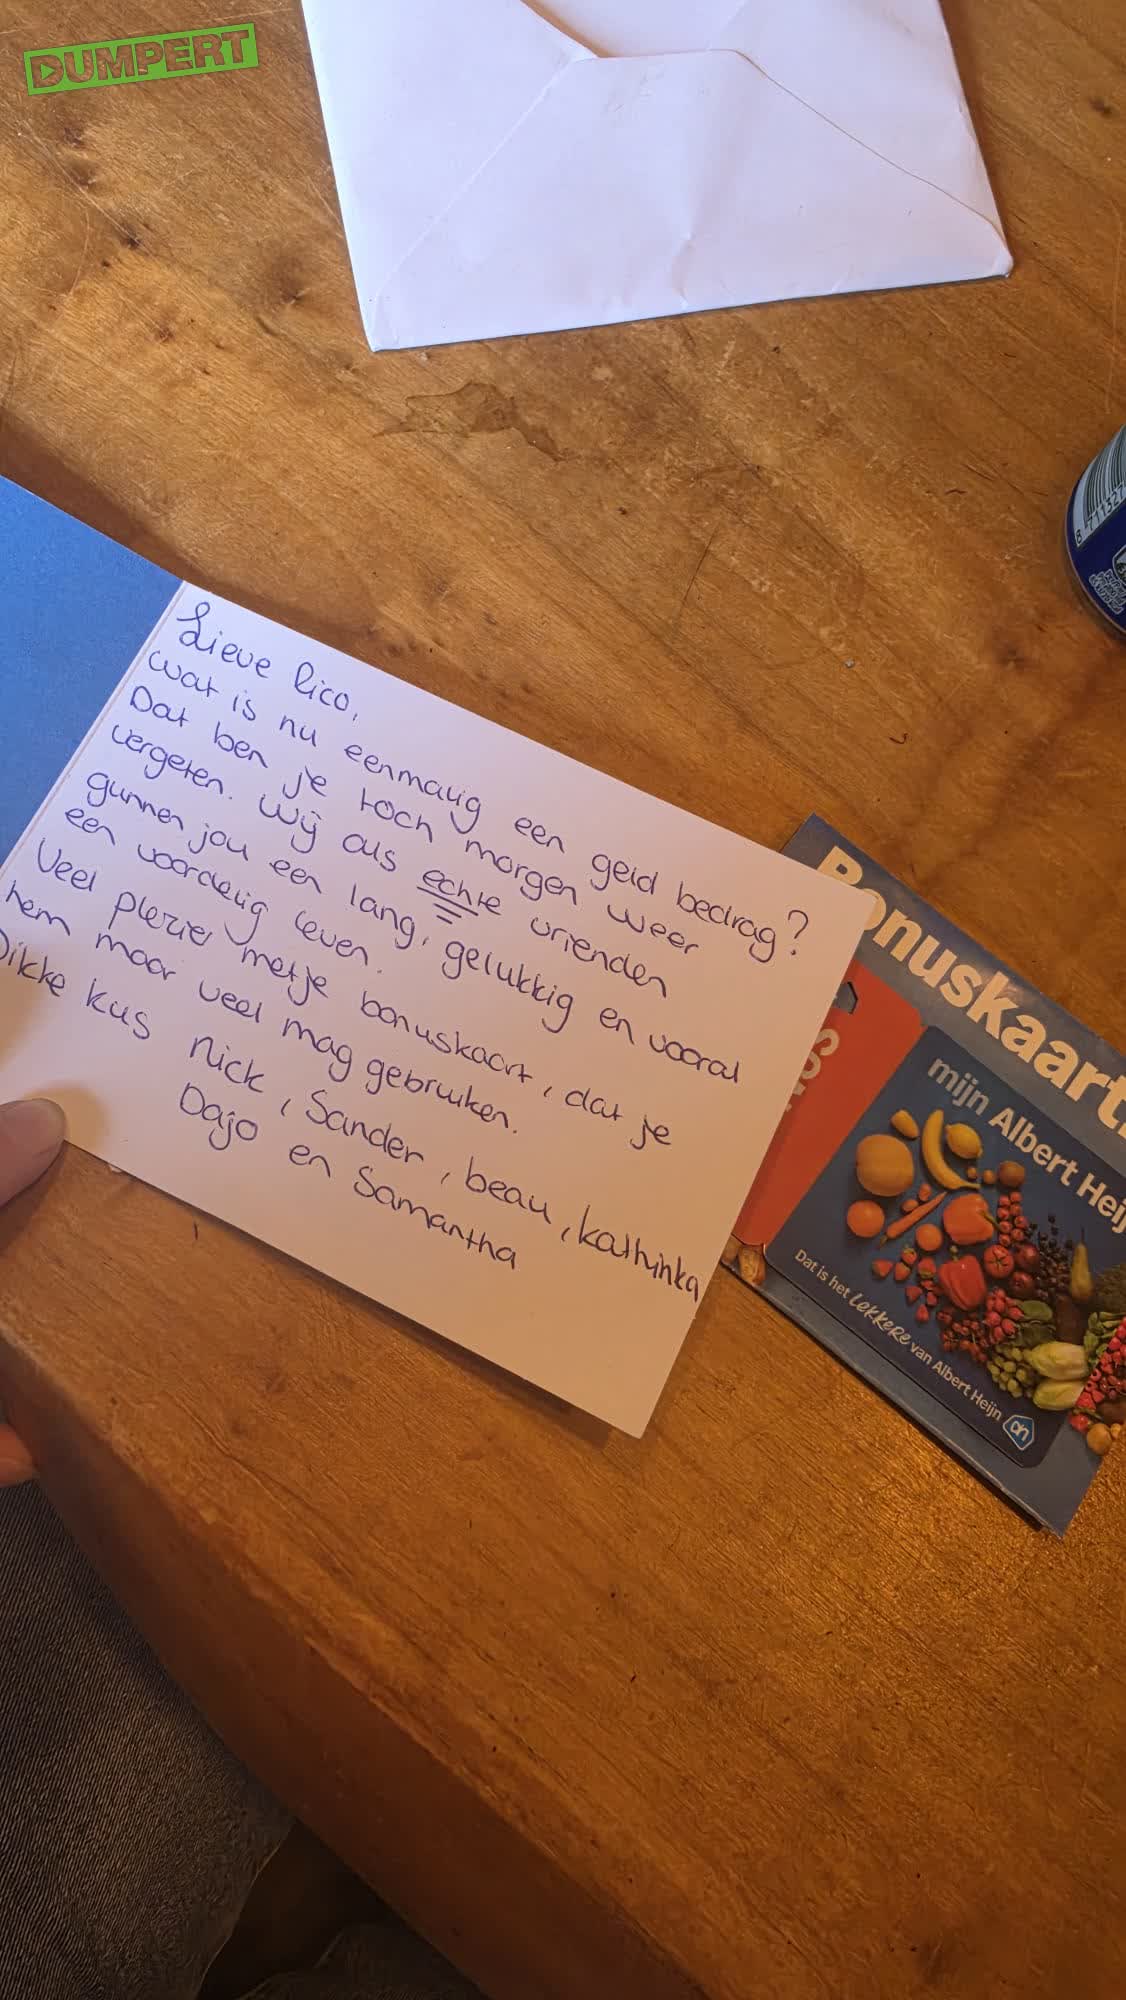 DUMPERT
Lieve Rico,
wat is nu eenmalig een geld bedrag?
Dat ben je toch morgen weer
vergeten. Wij als echte vrienden
gunnen jou een lang, gelukkig en vooral
een voordelig leven.
Veel plezier met je bonuskaart, dat je
hem maar veel mag gebruiken.
Dikke kus Nick, Sander, beau, kathinka
Dajo en Samantha
Bonuskaart
mijn Albert Heij
Dat is het lekkere van Albert Heijn
ah
8 711327